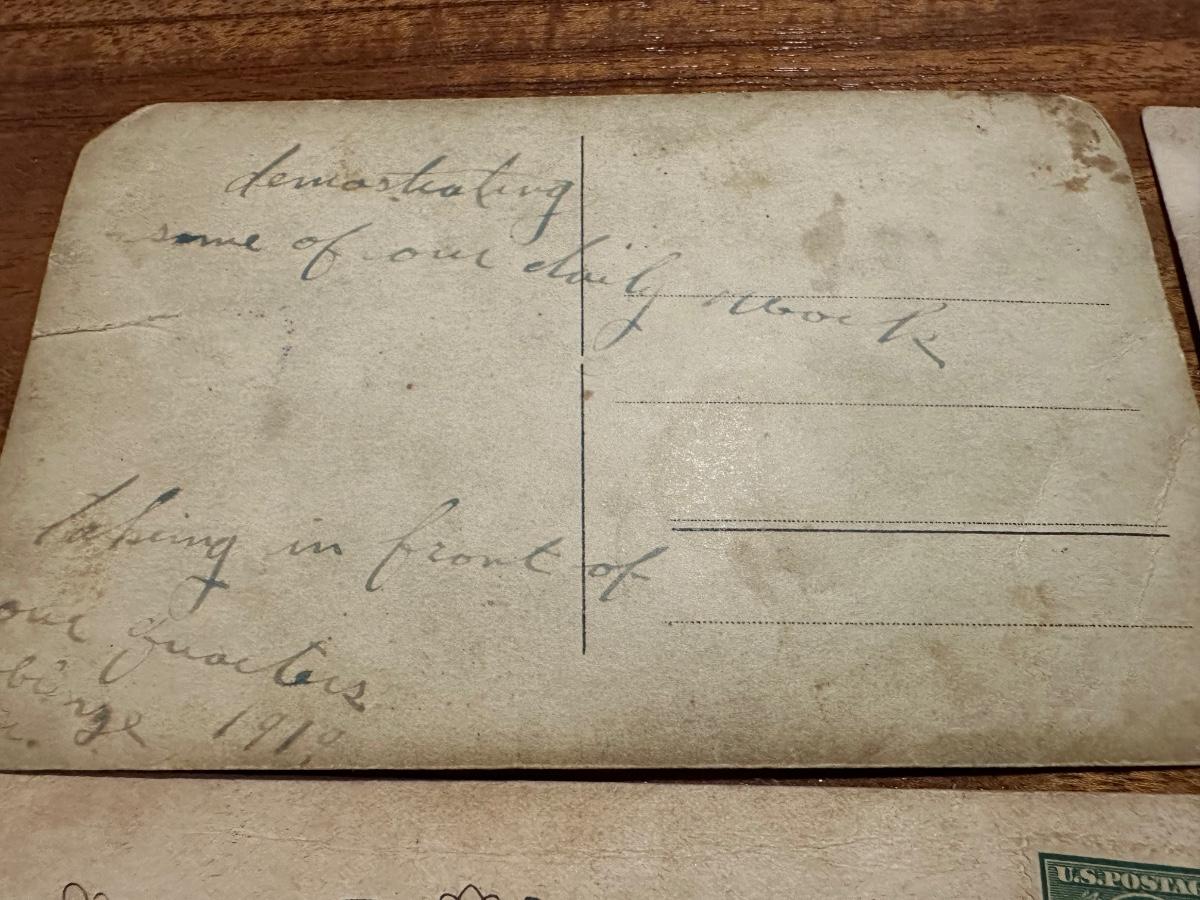 demostrating
some of our daily work
taking in front of
our quarters
1910
U.S. POSTAG